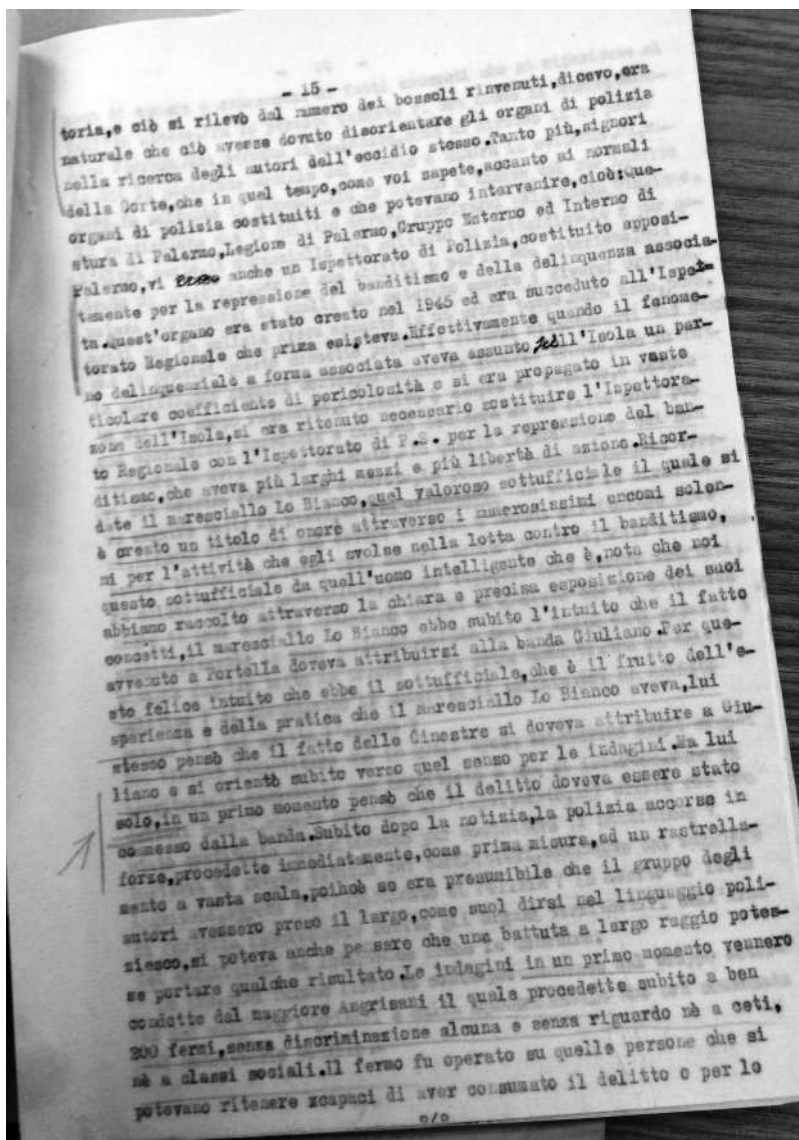 - 15 -
toria,e ciò si rilevò dal numero dei bossoli rinvenuti,dicevo,era
naturale che ciò avesse dovuto disorientare gli organi di polizia
nella ricerca degli autori dell'eccidio stesso.Tanto più,signori
della Corte,che in quel tempo,come voi sapete,accanto ai normali
organi di polizia costituiti e che potevano intervenire,cioè:que-
stura di Palermo,Legione di Palermo,Gruppo Esterno ed Interno di
Palermo,vi anche un Ispettorato di Polizia,costituito apposi-
tamente per la repressione del banditismo e della delinquenza associa-
ta.quest'organo era stato creato nel 1945 ed era succeduto all'Ispet-
torato Regionale che prima esisteva.Effettivamente quando il fenome-
no delinquenziale a forma associata aveva assunto nell'Isola un par-
ticolare coefficiente di pericolosità e si era propagato in vaste
zone dell'Isola,si era ritenuto necessario sostituire l'Ispettora-
to Regionale con l'Ispettorato di P.S. per la repressione del ban-
ditismo,che aveva più larghi mezzi e più libertà di azione.Ricor-
date il maresciallo Lo Bianco,quel valoroso sottufficiale il quale si
è creato un titolo di onore attraverso i numerosissimi encomi solen-
ni per l'attività che egli svolse nella lotta contro il banditismo,
questo sottufficiale da quell'uomo intelligente che è,nota che noi
abbiamo raccolto attraverso la chiara e precisa esposizione dei suoi
concetti,il maresciallo Lo Bianco ebbe subito l'intuito che il fatto
avvenuto a Portella doveva attribuirsi alla banda Giuliano.Per que-
sto felice intuito che ebbe il sottufficiale,che è il frutto dell'e-
sperienza e della pratica che il maresciallo Lo Bianco aveva,lui
stesso pensò che il fatto delle Ginestre si doveva attribuire a Giu-
liano e si orientò subito verso quel senso per le indagini.Ma lui
solo,in un primo momento pensò che il delitto doveva essere stato
commesso dalla banda.Subito dopo la notizia,la polizia accorse in
forze,procedette immediatamente,come prima misura,ad un rastrella-
mento a vasta scala,poichè se era presumibile che il gruppo degli
autori avessero preso il largo,come suol dirsi nel linguaggio poli-
ziesco,si poteva anche pensare che una battuta a largo raggio potes-
se portare qualche risultato.Le indagini in un primo momento vennero
condotte dal maggiore Angrisani il quale procedette subito a ben
200 fermi,senza discriminazione alcuna e senza riguardo nè a ceti,
nè a classi sociali.Il fermo fu operato su quelle persone che si
potevano ritenere xcapaci di aver consumato il delitto o per lo
o/o